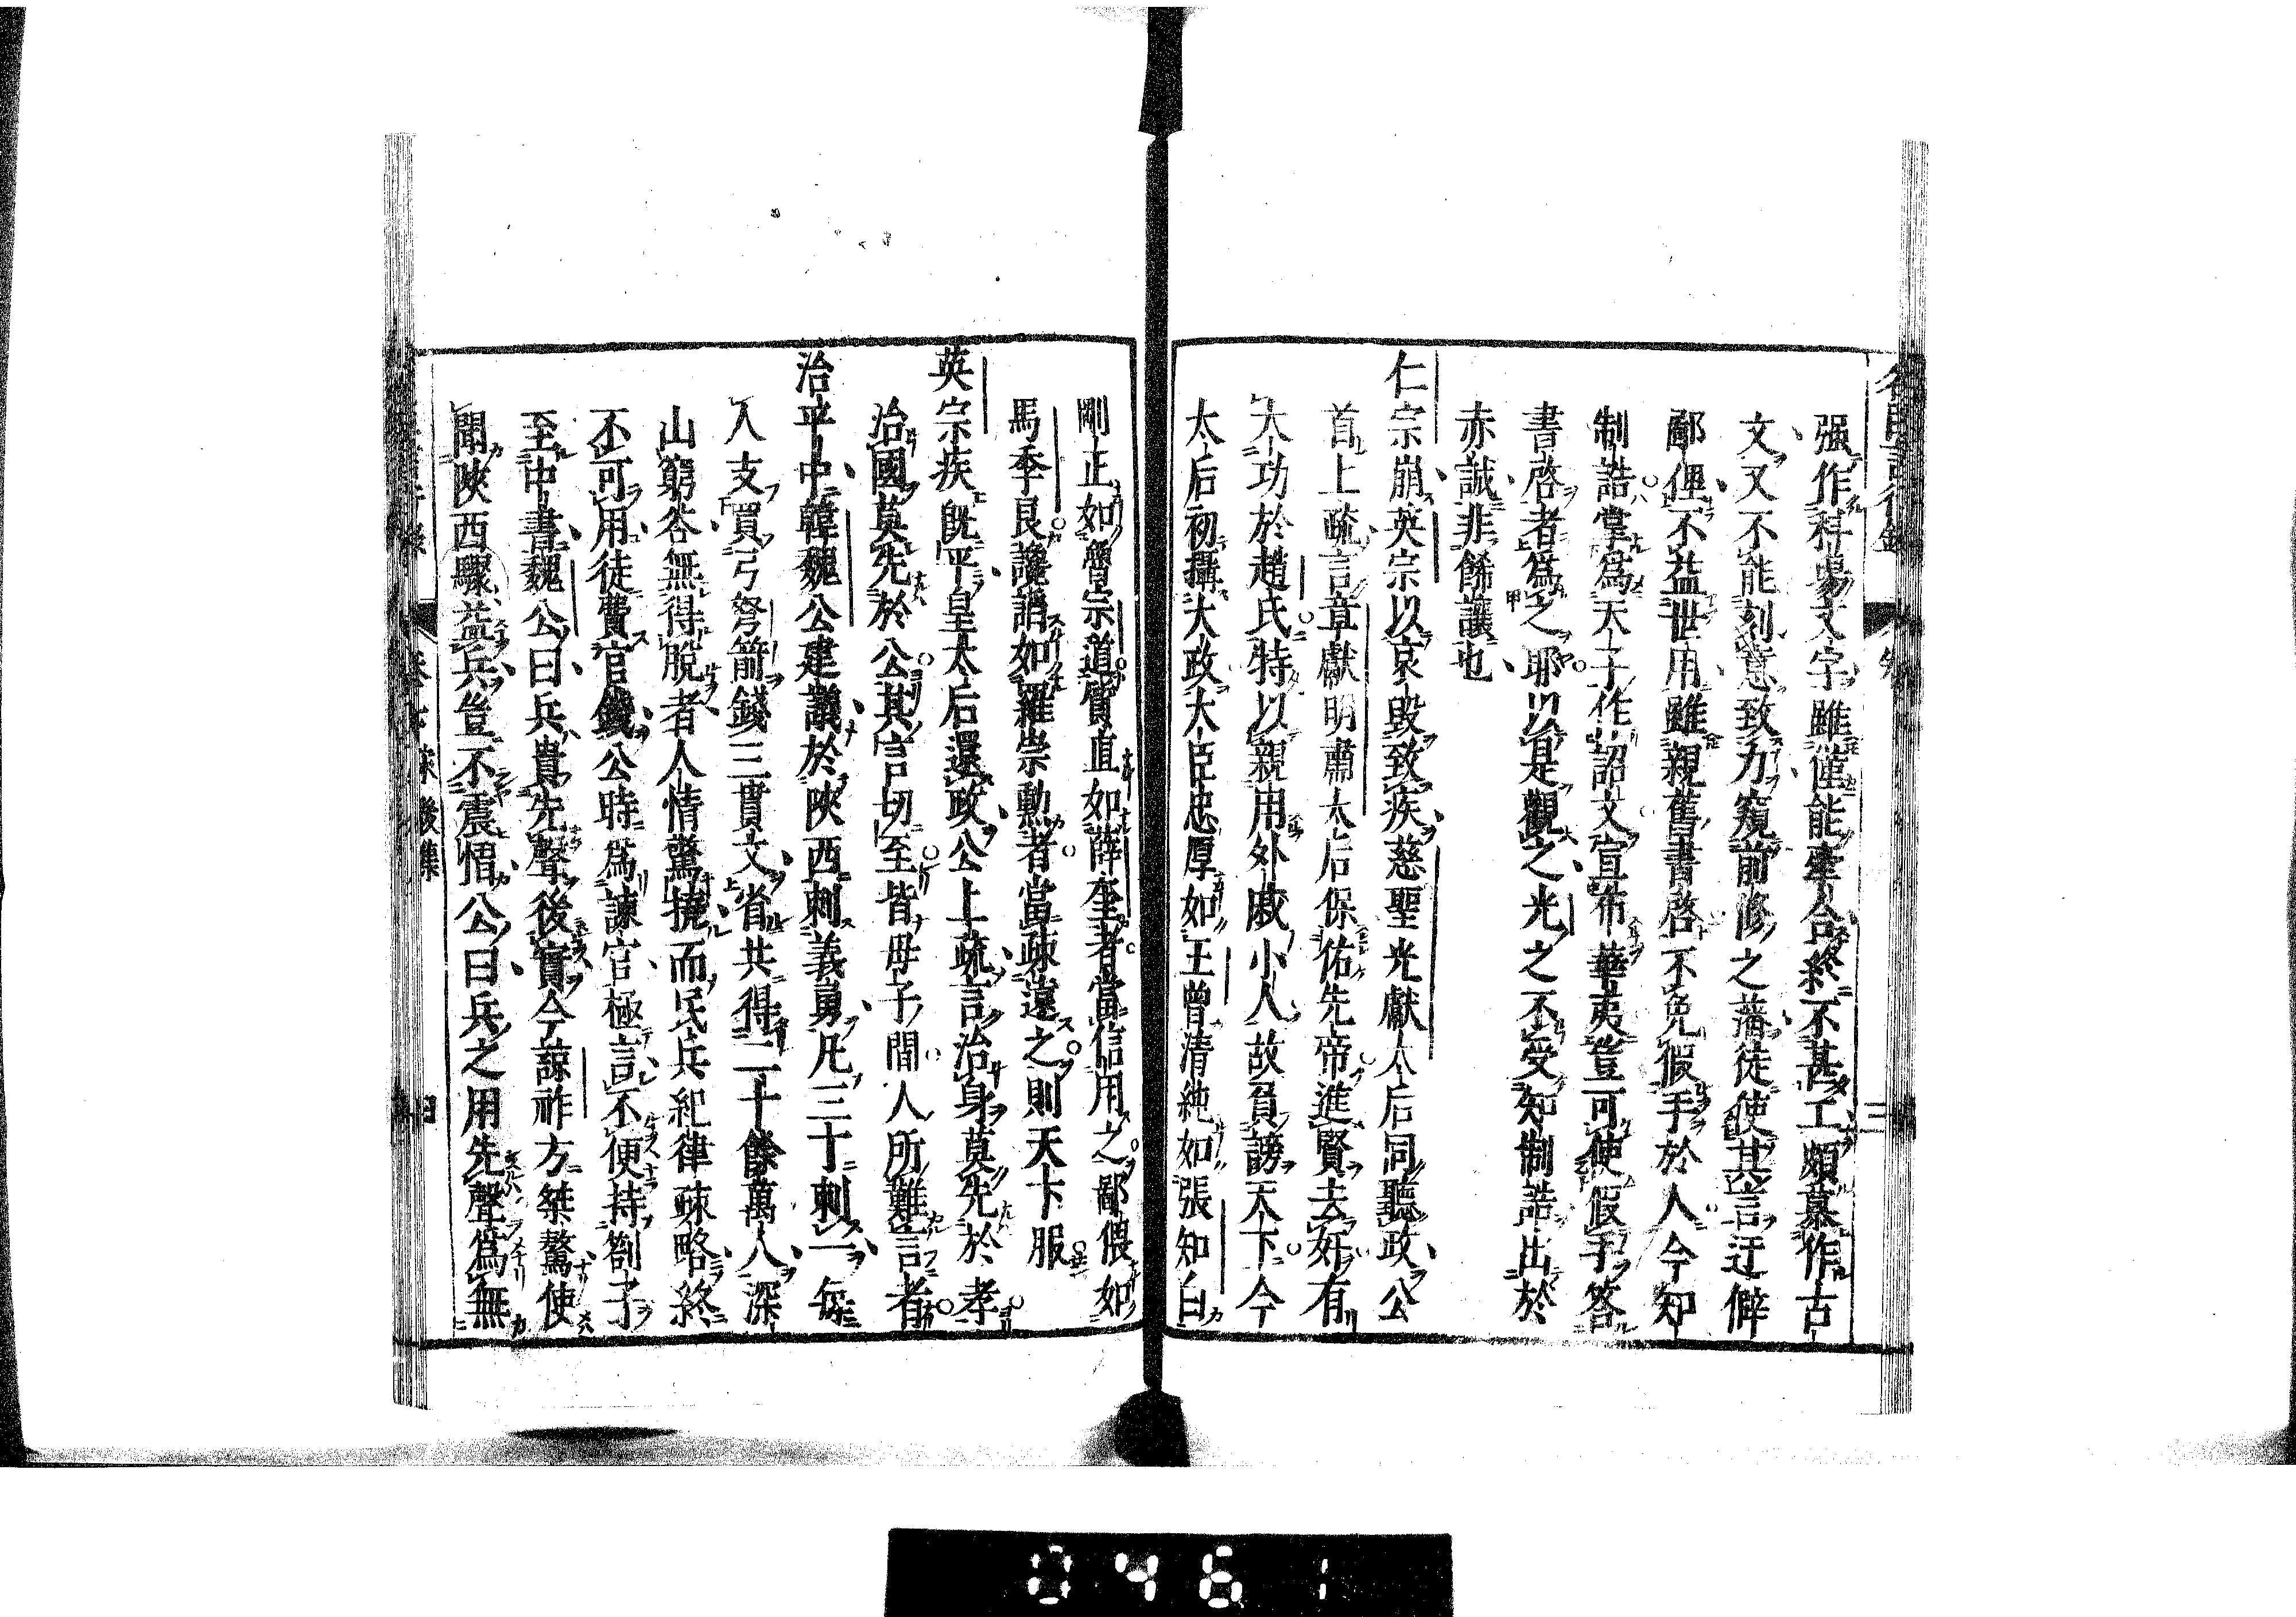 强作科場文字雖僅能牽合終不甚工頗慕作古
文又不能刻意致力窺前修之藩徒使其言迂僻
鄙俚不益世用雖親舊書啓不免假手於人今知
制誥掌爲天子作詔文宣布華夷豈可使假手答
書啓者爲之耶以是觀之光之不受知制誥出於
赤誠非餙讓也
仁宗崩英宗以哀毀致疾慈聖光獻太后同聽政公
首上疏言章獻明肅太后保佑先帝進賢去奸有
大功於趙氏特以親用外戚小人故負謗天下今
太后初攝大政大臣忠厚如王曾清純如張知白
剛正如魯宗道質直如薛奎者當信用之鄙偎如
馬季良讒謟如羅崇勳者當疎遠之則天下服
英宗疾旣平皇太后還政公上疏言治身莫先於孝
治國莫先於公其言切至皆母子間人所難言者
治平中韓魏公建議於陝西刺義勇凡三十刺一每
人支買弓弩箭錢三貫文省共得二十餘萬人深
山窮谷無得脱者人情驚撓而民兵紀律疎略終
不可用徒費官錢公時爲諫官極言不便持劄子
至中書魏公曰兵貴先聲後實今諒祚方桀驁使
聞陝西驟益兵豈不震慴公曰兵之用先聲爲無
0461